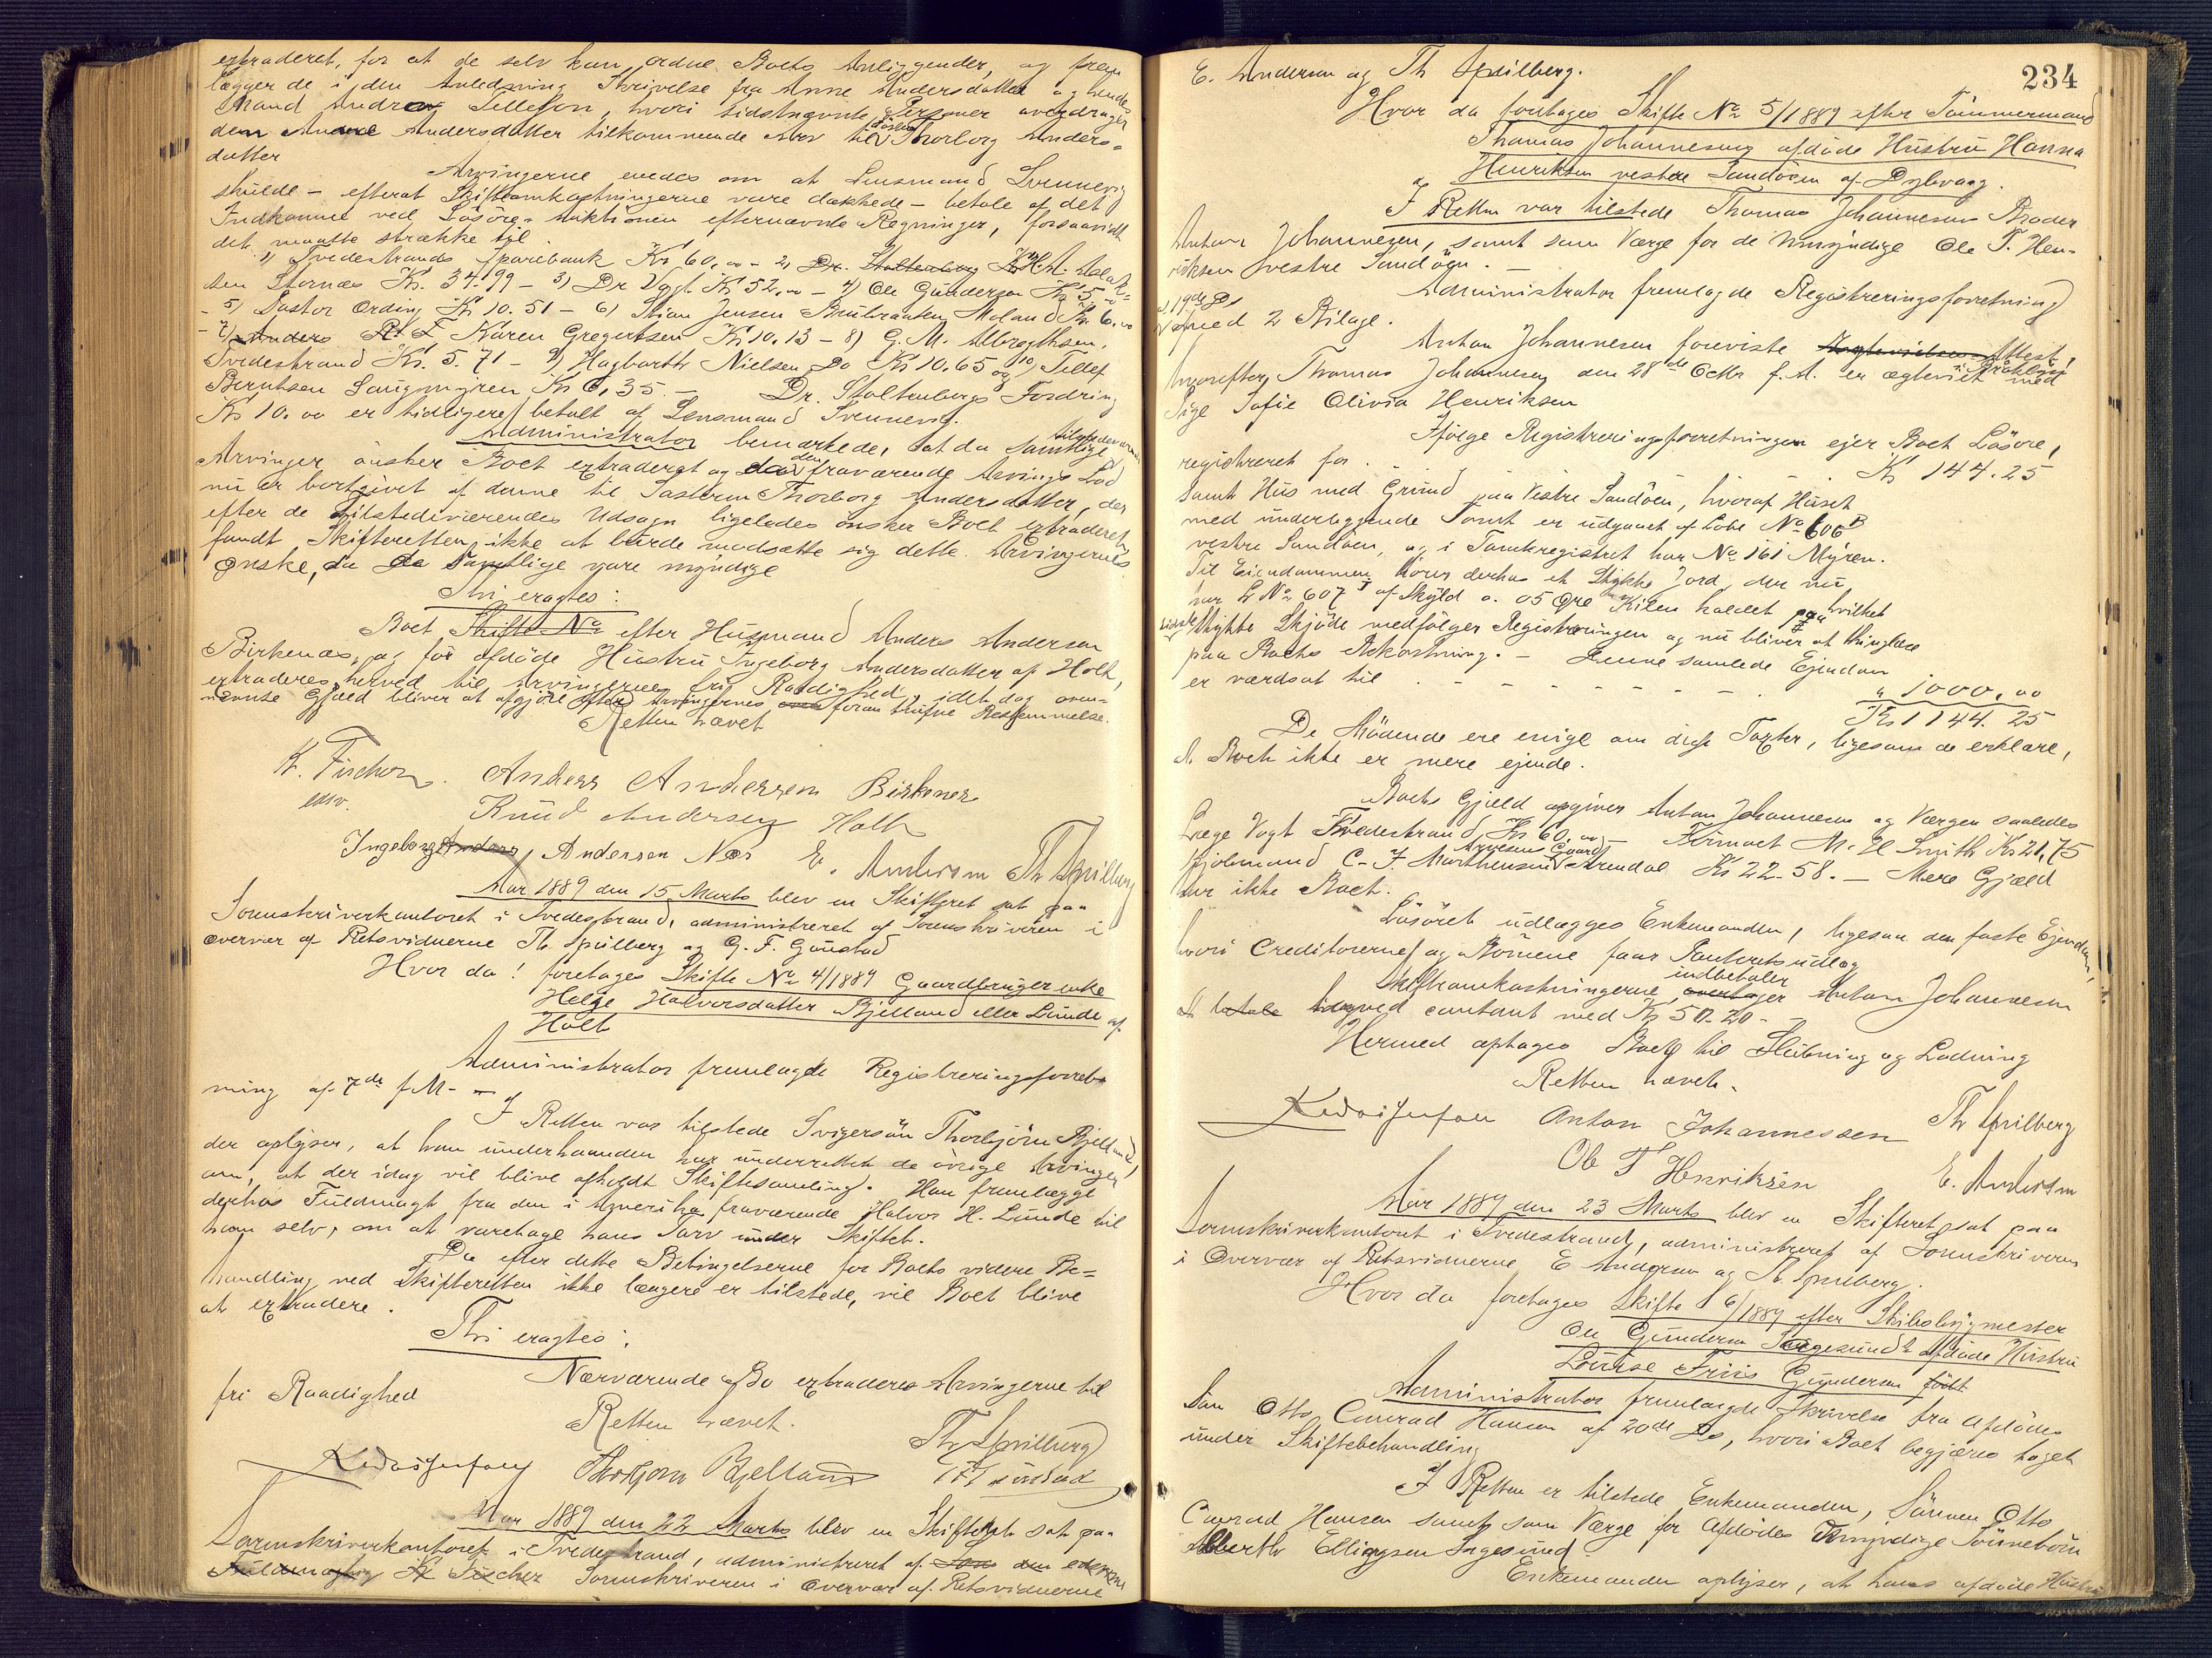 extraderet, for at de selv kan ordne Boets Anliggender, og frem
lægger de i den Anledning Skrivelse fra Anne Andersdatter og hendes
Mand Andreas Tellefsen, hvori sidstnævnte Personer overdrager
den Anne Andersdatter tilkommende Arv til Søsteren Thorborg Anders=
datter
Arvingerne enedes om at Lensmand Svennevig
skulde – efterat Skifteomkostningerne vare dækkede – betale af det
Indkomne ved Løsøre-Auktionen efternævnte Regninger, forsaavidt
det maatte strække til.
1) Tvedestrands Sparebank Kr 60,00 – 2) Dr. Stoltenberg H. A. Aslak=
sen Stornæs Kr. 34.99 – 3) Dr Vogt Kr 52,00 – 4) Ole Gunderson Kr 5
– 5) Pastor Ording Kr 10.51 – 6) Stian Jensen Brubraaten Moland Kr. 6.00
– 7) Anders Karen Gregertsen Kr 10.13 – 8) G. M. Albregthsen,
Tvedestrand Kr. 5.71 – 9) Hagbarth Nielsen Do Kr 10.65 og 10) Tellef
Berntsen Laugmyren Kr 6,35 – Dr. Stoltenbergs Fordring
Kr 10.00 er tidligere betalt af Lensmand Svennevig.
Administrator bemærkede, at da samtlige tilstedeværende
Arvinger ønsker Boet extraderet og den fraværende Arvings Lod
nu er bortgivet af denne til Søsteren Thorborg Andersdatter, der
efter de Tilstedeværendes Udsagn ligeledes ønsker Boet extraderet,
fandt Skifteretten ikke at burde modsætte sig dette Arvingernes
Ønske, da de samtlige vare myndige
Thi eragtes:
Boet Skifte No efter Husmand Anders Andersen
Birkenæs, og før afdøde Hustru Ingeborg Andersdatter af Holt,
extraderes herved til Arvingernes fri Raadighed, idet dog oven=
nævnte Gjæld bliver at afgjøre efter Arvingernes foran trufne Bestemmelse.
Retten hævet
K. Fischer. Anders Andersen Birkenes
edsv. Knud Andersen Holt
Ingeborg Anders Andersen Næs E. Andersen Th Spilberg
Aar 1889 den 15 Marts blev en Skifteret sat paa
Sorenskriverkontoret i Tvedestrand, administreret af Sorenskriveren i
Overvær af Retsvidnerne Th. Spilberg og G. F. Gaustad
Hvor da! foretages Skifte No 4/1889 Gaardbrugerenke
Helge Halvorsdatter Bjelland eller Lunde af
Holt
Administrator fremlagde Registreringsforret=
ning af 7de f. M. –
I Retten var tilstede Svigersøn Thorbjørn Bjelland,
der oplyser, at han underhaanden har underrettet de øvrige Arvinger
om, at der idag vil blive afholdt Skiftesamling. Han fremlægge
derhos Fuldmagt fra den i Amerika fraværende Halvor H. Lunde til
ham selv, om at varetage hans Tarv under Skiftet.
Da efter dette Betingelserne for Boets videre Be=
handling ved Skifteretten ikke længere er tilstede, vil Boet blive
at extradere.
Thi eragtes:
Nærværende Bo extraderes Arvingerne til
fri Raadighed
Retten hævet.
Thorbjørn Bjelland Th. Spilberg
Aar 1889 den 22 Marts blev en Skifteret sat paa
Sorenskriverkontoret i Tvedestrand, administreret af den edsvorne
Fuldmægtig K Fischer Sorenskriveren i Overvær af Retsvidnerne
234
E. Andersen og Th Spilberg.
Hvor da foretages Skifte No 5/1889 efter Tømmermand
Thomas Johannesens afdøde Hustru Hanna
Henriksen vestre Sandøen af Dybvaag.
I Retten var tilstede Thomas Johannesens Broder
Anton Johannesen, samt som Værge for de Umyndige Ole T. Hen=
riksen vestre Sandøen. –
Administrator fremlagde Registreringsforretning
af 19de Ds
med 2 Bilage.
Anton Johannesen foreviste Attest,
hvorefter Thomas Johannesen den 28de Octbr f. A. er ægteviet med
Pige Sofie Olivia Henriksen
Ifølge Registreringsforretningen ejer Boet Løsøre,
registreret for . . . Kr 144.25
samt Hus med Grund paa Vestre Sandøen, hvoraf Huset
med underliggende Tomt er udgaaet af Løbe No 606B
vestre Sandøen, og i Tomteregistret har No 161 Myren.
Til Eiendommen hører derhos et Stykke Jord, der nu
har L No 607 af Skyld 0.05 Øre Kilen kaldet paa hvilket
sidste Stykke Skjøde medfølger Registreringen og nu bliver at thinglæse
paa Boets Bekostning. – Denne samlede Ejendom
er værdsat til . – – – – – – – – " 1000.00
Kr 1144.25
De Mødende ere enige om disse Taxter, ligesom de erklære,
at Boet ikke er mere ejende.
Boets Gjæld opgiver Anton Johannesen og Værgen saaledes
Læge Vogt Tvedestrand, Kr 60,00 – Firmaet M. H Smith Kr 21,75
Kjøbmand C. F. Marthinsen Arendal Kr 22.58. – Mere Gjæld
har ikke Boet.
Løsøret udlægges Enkemanden, ligesaa den faste Ejendom,
hvori Creditorerne og Børnene faar Panteretsudlæg
Skifteomkostningerne indbetaler Anton Johannesen
at betale idag ved contant med Kr 50.20 –
Hermed optages Boet til Slutning og Lodning
Retten hævet.
Anton Johannessen Th Spilberg
Ole T Henriksen E. Andersen
Aar 1889 den 23 Marts blev en Skifteret sat paa
Sorenskriverkontoret i Tvedestrand, administreret af Sorenskriveren
i Overvær af Retsvidnerne E Andersen og Th. Spilberg.
Hvor da foretages Skifte 6/1889 efter Skibsbygmester
Ole Gundersen Sagesunds afdøde Hustru
Lovise Friis Gundersen født
Administrator fremlagde Skrivelse fra Afdødes
Søn Otto Conrad Hansen af 20de Ds, hvori Boet begjæres taget
under Skiftebehandling
I Retten er tilstede Enkemanden, Sønnen Otto
Conrad Hansen samt som Værge for Afdødes Umyndige Sønnebørn
Alberth Ellingsen Sagesund.
Enkemanden oplyser, at hans afdøde Hustru